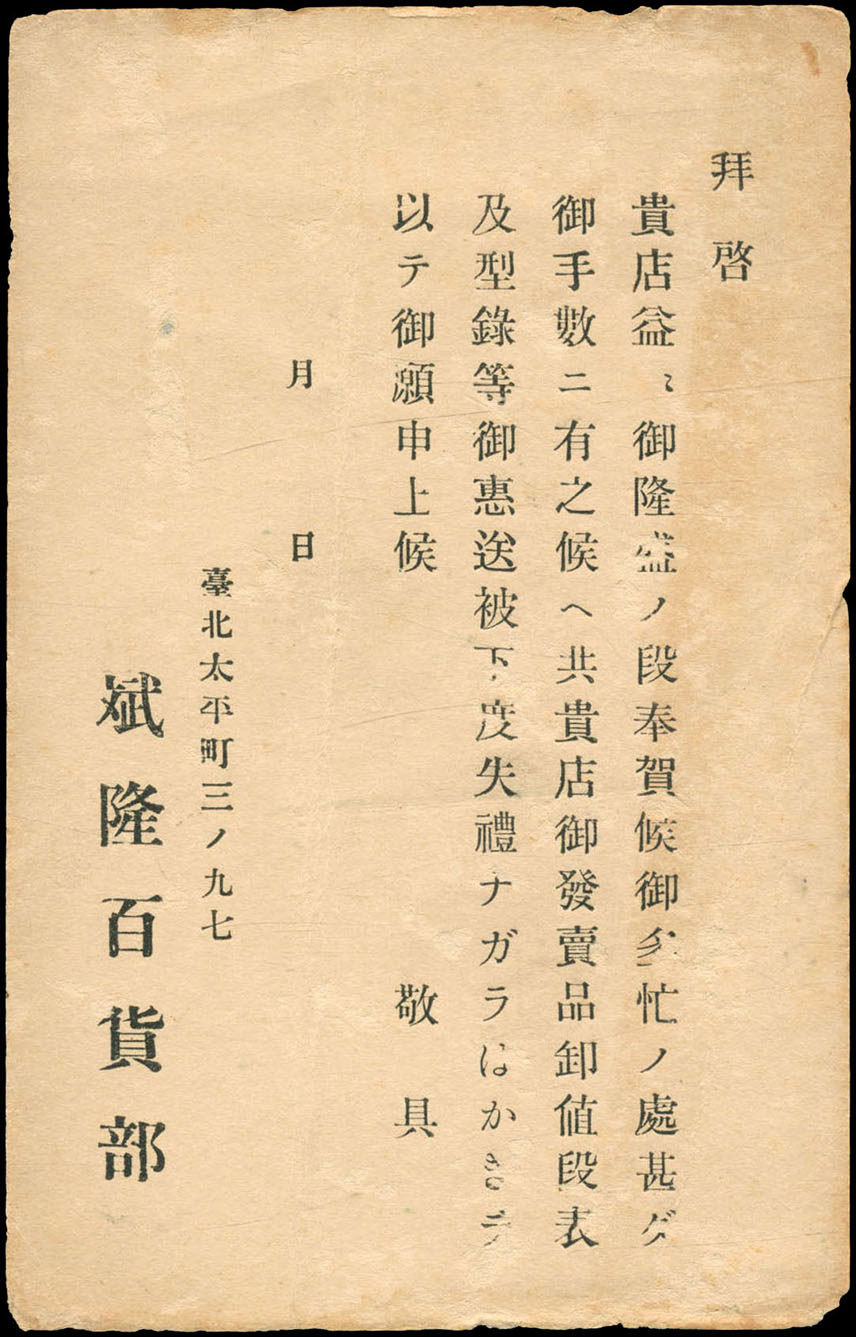 拜啓
貴店益々御隆盛ノ段奉賀候御多忙ノ處甚ダ
御手數ニ有之候ヘ共貴店御發賣品卸値段表
及型錄等御惠送被下度失禮ナガラはがきヲ
以テ御願申上候　敬具
月　日
臺北太平町三ノ九七
斌隆百貨部